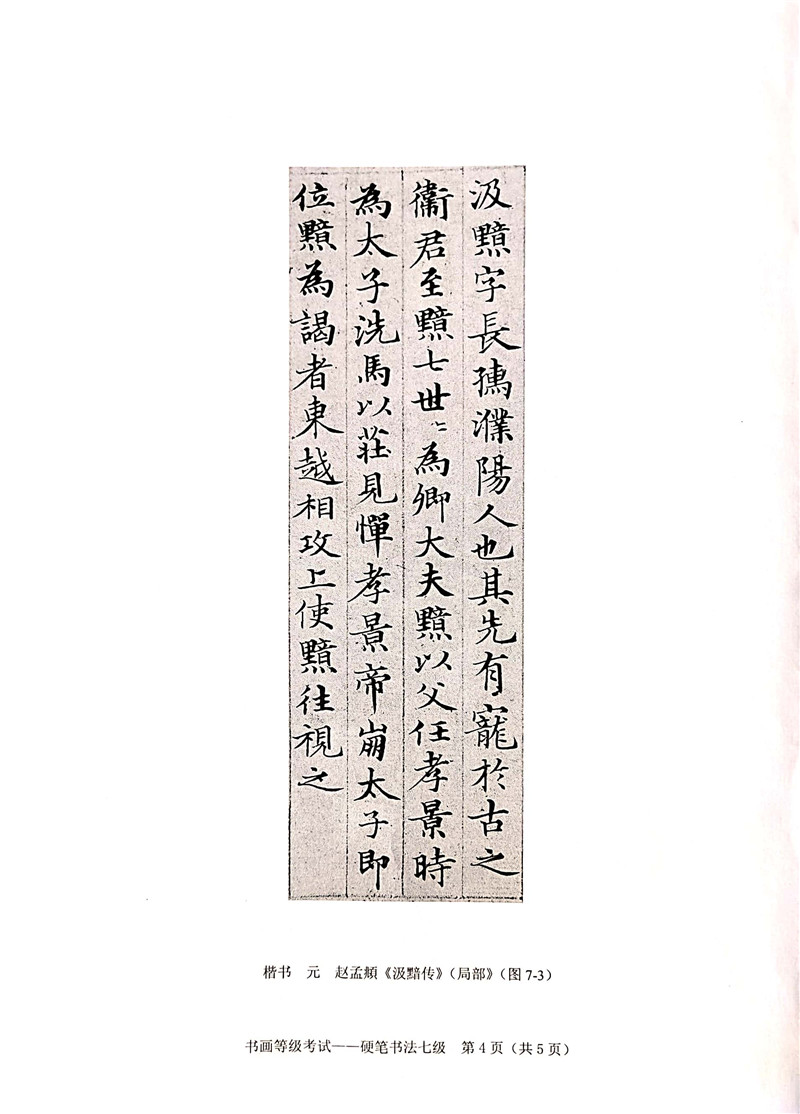 汲黯字長孺濮陽人也其先有寵於古之
衞君至黯七世〻為卿大夫黯以父任孝景時
為太子洗馬以莊見憚孝景帝崩太子即
位黯為謁者東越相攻上使黯往視之
楷书 元 赵孟頫《汲黯传》（局部》（图7-3）
书画等级考试——硬笔书法七级 第4页（共5页）